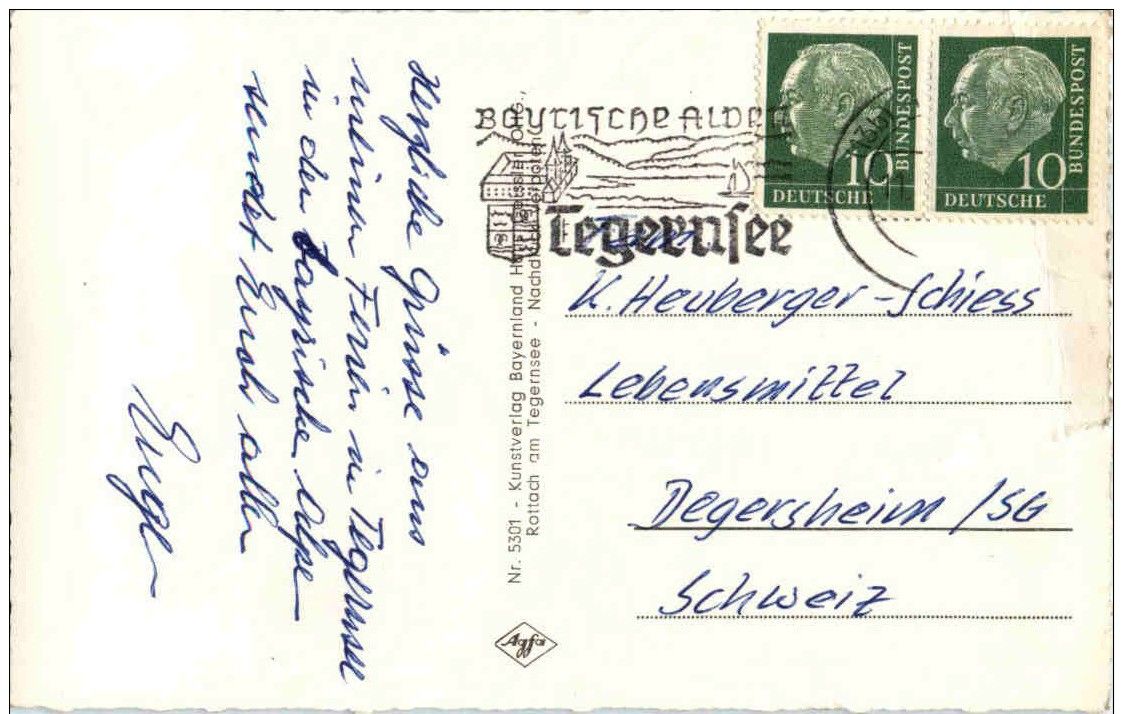 Herzliche Grüsse aus
meinen Ferien in Tegernsee
in den bayrischen Alpen
sendet Euch allen
Nr. 5301 - Kunstverlag Bayernland
Rottach am Tegernsee - Nachdruck verboten
Agfa
BAYRISCHE ALPEN
Tegernsee
10
DEUTSCHE
BUNDESPOST
10
DEUTSCHE
BUNDESPOST
Fam.
K. Heuberger-Schiess
Lebensmittel
Degersheim /SG
Schweiz